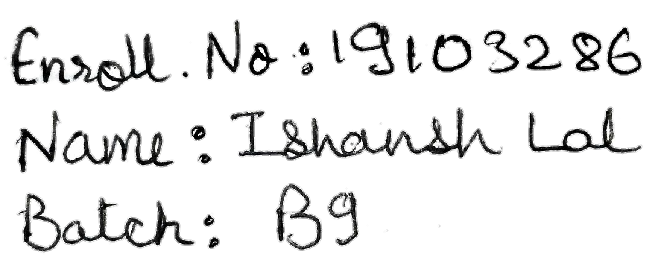 Enroll. No : 19103286
Name : Ishansh Lal
Batch : B9